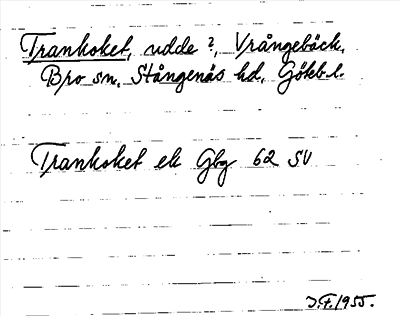 Trankoket, udde?, Vrångebäck,
Bro sn, Stångenäs hd, Göteb. l.
Trankoket ek Gbg 62 SV
J.F. 1955.